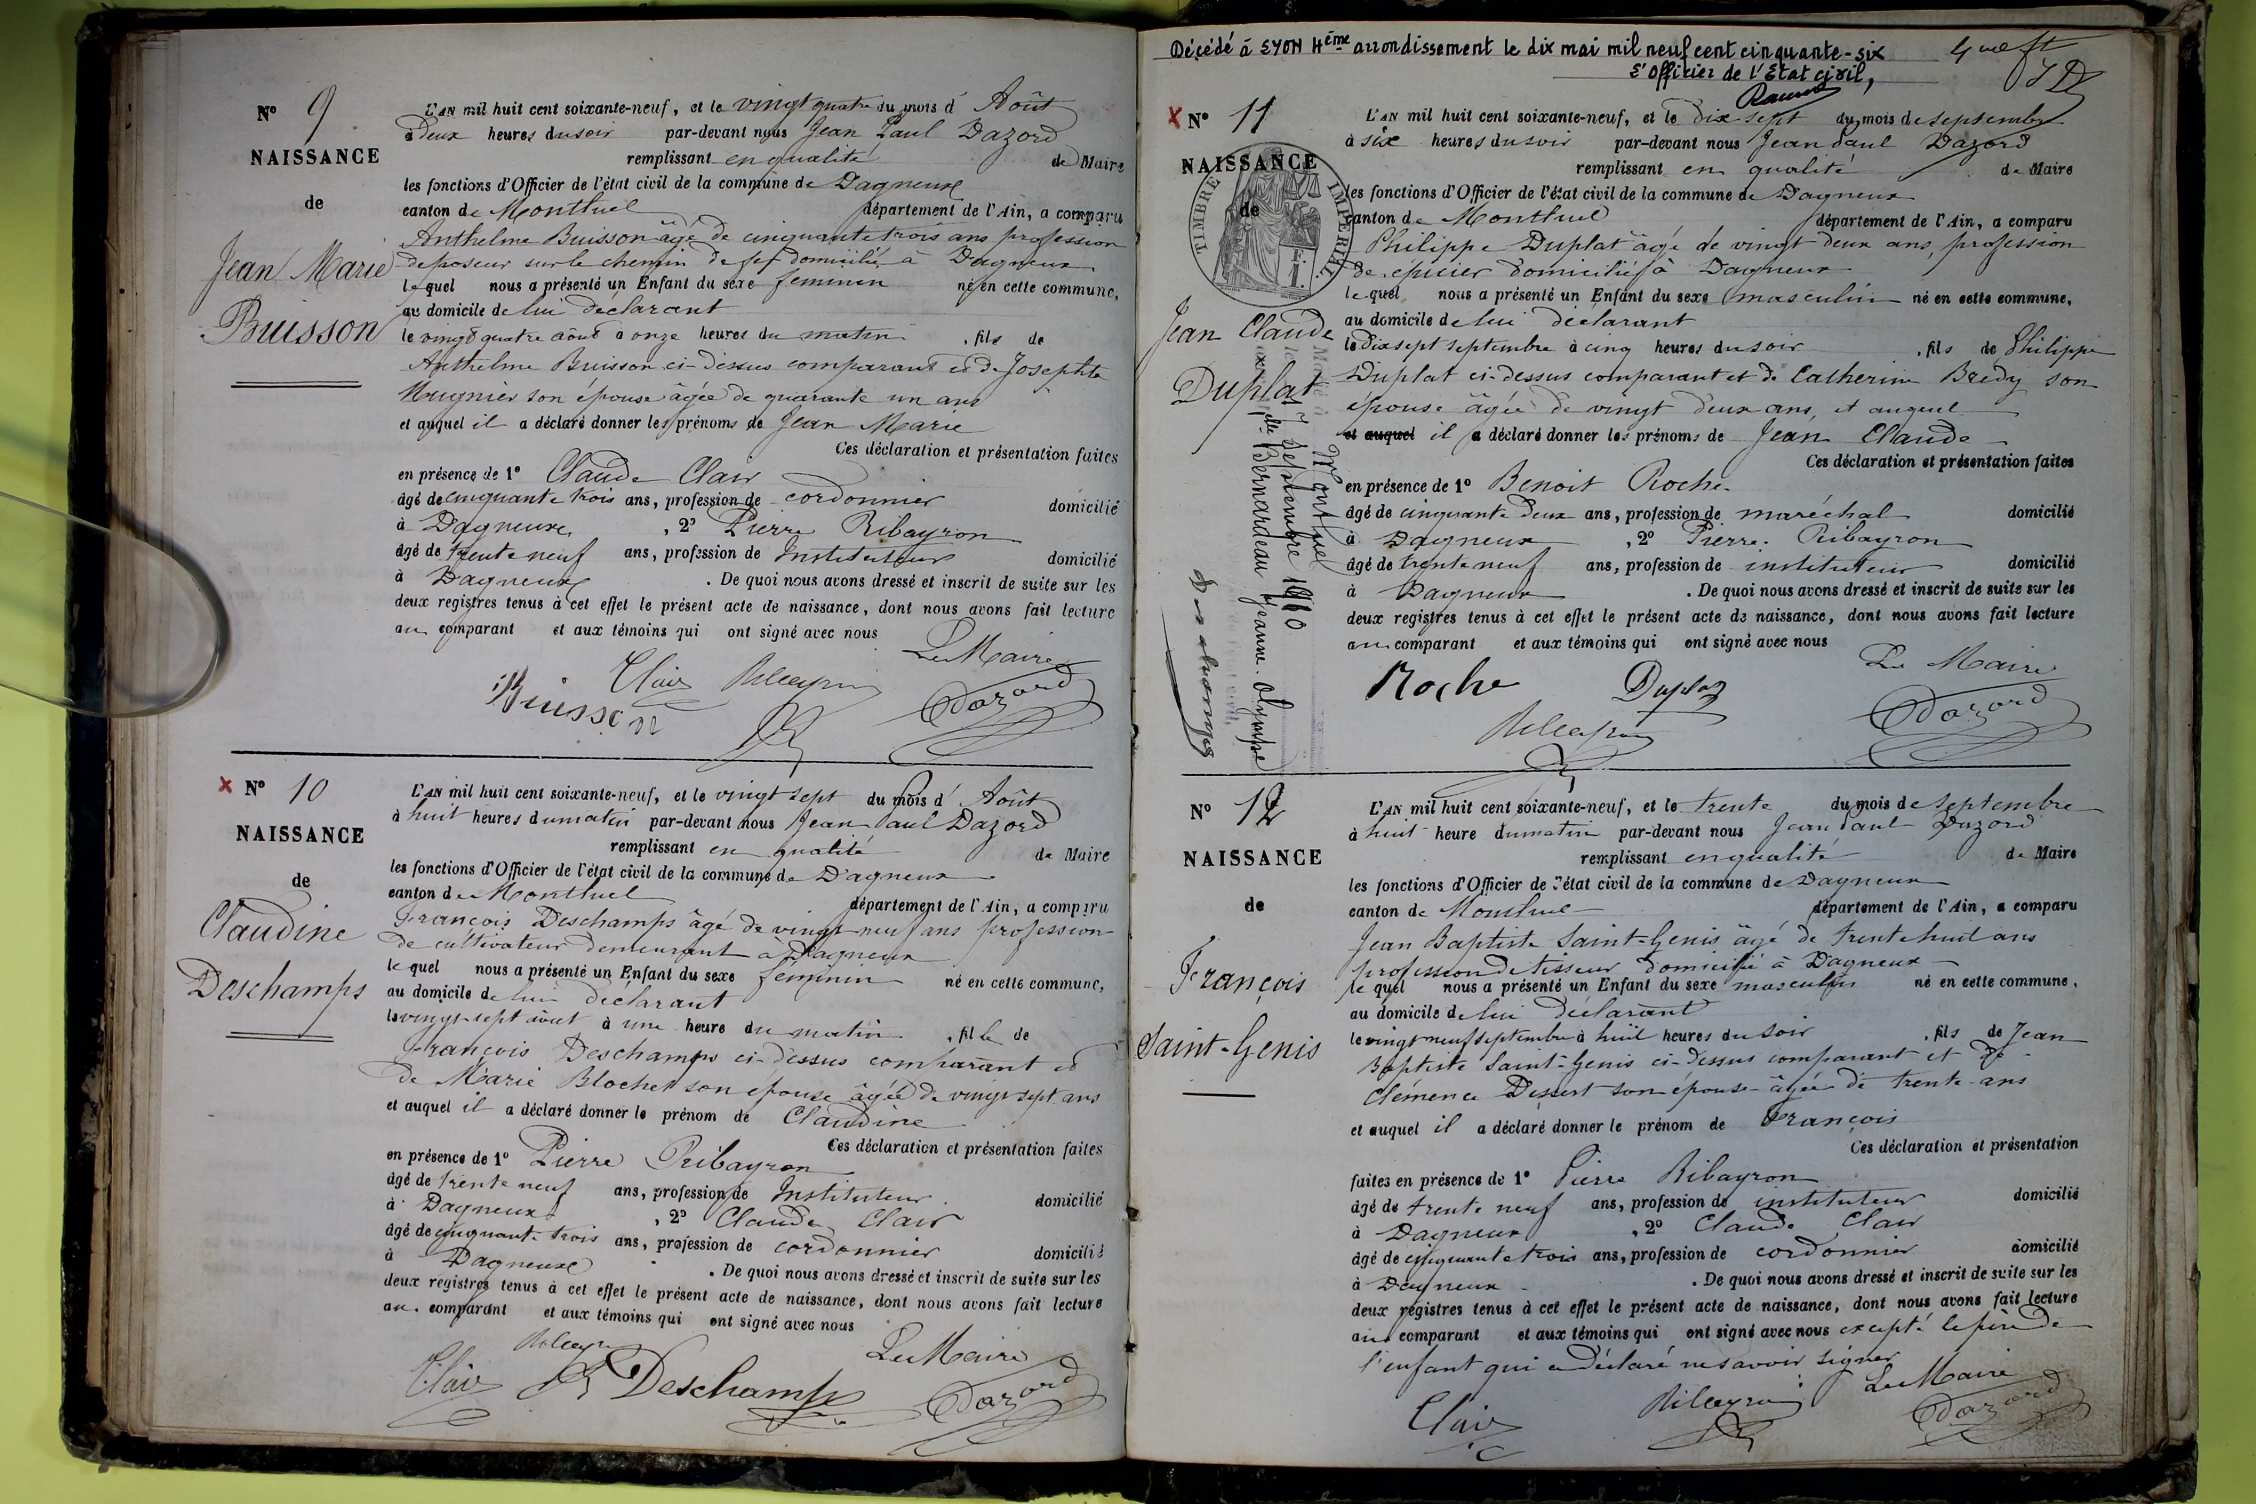 N° 9
NAISSANCE
de
Jean Marie
Buisson
L'AN mil huit cent soixante-neuf, et le vingt quatre du mois d' Août
à Deux heures du soir par-devant nous Jean Paul Dazord
remplissant en qualité de Maire
les fonctions d'Officier de l'état civil de la commune de Dagneux
canton de Montluel département de l'Ain, a comparu
Anthelme Buisson âgé de cinquante trois ans profession
de poseur sur le chemin de fer domicilié à Dagneux
lequel nous a présenté un Enfant du sexe feminin né en cette commune,
au domicile de lui déclarant
le vingt quatre août à onze heures du matin , fils de
Anthelme Buisson ci-dessus comparant et de Josephte
Mugnier son épouse âgée de quarante un ans
et auquel il a déclaré donner les prénoms de Jean Marie
Ces déclaration et présentation faites
en présence de 1° Claude Clair
âgé de cinquante trois ans, profession de cordonnier domicilié
à Dagneux , 2° Pierre Ribayron
âgé de trente neuf ans, profession de Instituteur domicilié
à Dagneux . De quoi nous avons dressé et inscrit de suite sur les
deux registres tenus à cet effet le présent acte de naissance, dont nous avons fait lecture
au comparant et aux témoins qui ont signé avec nous
Le Maire
Buisson Clair Ribayron Dazord
N° 10
NAISSANCE
de
Claudine
Deschamps
L'AN mil huit cent soixante-neuf, et le vingt sept du mois d' Août
à huit heures du matin par-devant nous Jean Paul Dazord
remplissant en qualité de Maire
les fonctions d'Officier de l'état civil de la commune de Dagneux
canton de Montluel département de l'Ain, a comparu
François Deschamps âgé de vingt-neuf ans profession
de cultivateur demeurant à Dagneux
lequel nous a présenté un Enfant du sexe féminin né en cette commune,
au domicile de lui déclarant
le vingt-sept août à une heure du matin , fille de
François Deschamps ci-dessus comparant et
de Marie Blochet son épouse âgée de vingt sept ans
et auquel il a déclaré donner le prénom de Claudine
Ces déclaration et présentation faites
en présence de 1° Pierre Ribayron
âgé de trente neuf ans, profession de Instituteur domicilié
à Dagneux , 2° Claude Clair
âgé de cinquante trois ans, profession de cordonnier domicilié
à Dagneux . De quoi nous avons dressé et inscrit de suite sur les
deux registres tenus à cet effet le présent acte de naissance, dont nous avons fait lecture
au comparant et aux témoins qui ont signé avec nous
Le Maire
Clair Ribayron Deschamps Dazord
Décédé à LYON 4ème arrondissement le dix mai mil neuf cent cinquante-six
L'Officier de l'Etat civil,
N° 11
NAISSANCE
de
TIMBRE IMPERIAL
Jean Claude
Duplat
Marié à Montluel
le 17 septembre 1910
Bernardeau Jeanne Olympe
L'AN mil huit cent soixante-neuf, et le dix sept du mois de septembre
à six heures du soir par-devant nous Jean Paul Dazord
remplissant en qualité de Maire
les fonctions d'Officier de l'état civil de la commune de Dagneux
canton de Montluel département de l'Ain, a comparu
Philippe Duplat âgé de vingt deux ans, profession
de épicier domicilié à Dagneux
lequel nous a présenté un Enfant du sexe masculin né en cette commune,
au domicile de lui déclarant
le dix sept septembre à cinq heures du soir , fils de Philippe
Duplat ci-dessus comparant et de Catherine Bredy son
épouse âgée de vingt deux ans, et auquel
et auquel il a déclaré donner les prénoms de Jean Claude
Ces déclaration et présentation faites
en présence de 1° Benoit Roche
âgé de cinquante deux ans, profession de maréchal domicilié
à Dagneux , 2° Pierre Ribayron
âgé de trente neuf ans, profession de instituteur domicilié
à Dagneux . De quoi nous avons dressé et inscrit de suite sur les
deux registres tenus à cet effet le présent acte de naissance, dont nous avons fait lecture
au comparant et aux témoins qui ont signé avec nous
Le Maire
Roche Duplat Dazord
Ribayron
N° 12
NAISSANCE
de
François
Saint-Genis
L'AN mil huit cent soixante-neuf, et le trente du mois de septembre
à huit heure du matin par-devant nous Jean Paul Dazord
remplissant en qualité de Maire
les fonctions d'Officier de l'état civil de la commune de Dagneux
canton de Montluel département de l'Ain, a comparu
Jean Baptiste Saint-Genis âgé de trente huit ans
profession de tisseur domicilié à Dagneux
lequel nous a présenté un Enfant du sexe masculin né en cette commune,
au domicile de lui déclarant
le vingt neuf septembre à huit heures du soir , fils de Jean
Baptiste Saint-Genis ci-dessus comparant et de
Clémence Dessert son épouse âgée de trente ans
et auquel il a déclaré donner le prénom de François
Ces déclaration et présentation
faites en présence de 1° Pierre Ribayron
âgé de trente neuf ans, profession de instituteur domicilié
à Dagneux , 2° Claude Clair
âgé de cinquante trois ans, profession de cordonnier domicilié
à Dagneux . De quoi nous avons dressé et inscrit de suite sur les
deux registres tenus à cet effet le présent acte de naissance, dont nous avons fait lecture
au comparant et aux témoins qui ont signé avec nous excepté le père de
l'enfant qui a déclaré ne savoir signer
Le Maire
Clair Ribayron Dazord